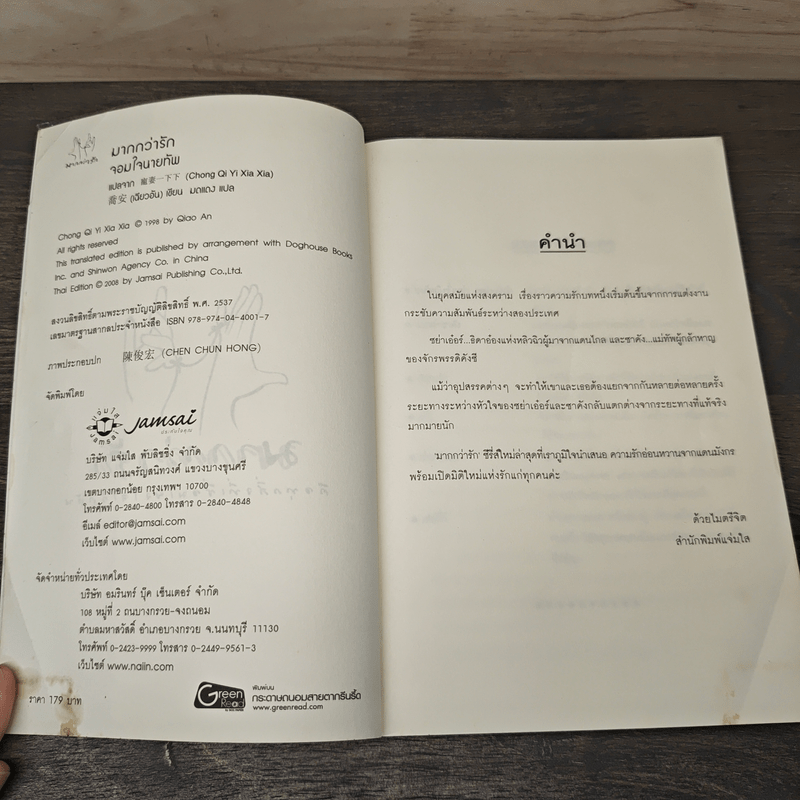 มากกว่ารัก
มากกว่ารัก
จอมใจนายทัพ
แปลจาก 寵妻一下下 (Chong Qi Yi Xia Xia)
喬安 (เฉียวอัน) เขียน มดแดง แปล
Chong Qi Yi Xia Xia © 1998 by Qiao An
All rights reserved
This translated edition is published by arrangement with Doghouse Books
Inc. and Shinwon Agency Co. in China
Thai Edition © 2008 by Jamsai Publishing Co.,Ltd.
สงวนลิขสิทธิ์ตามพระราชบัญญัติลิขสิทธิ์ พ.ศ. 2537
เลขมาตรฐานสากลประจำหนังสือ ISBN 978-974-04-4001-7
ภาพประกอบปก 陳俊宏 (CHEN CHUN HONG)
จัดพิมพ์โดย
แจ่มใส
Jamsai
Jamsai
บริษัท แจ่มใส พับลิชชิ่ง จำกัด
285/33 ถนนจรัญสนิทวงศ์ แขวงบางขุนศรี
เขตบางกอกน้อย กรุงเทพฯ 10700
โทรศัพท์ 0-2840-4800 โทรสาร 0-2840-4848
อีเมล์ editor@jamsai.com
เว็บไซต์ www.jamsai.com
จัดจำหน่ายทั่วประเทศโดย
บริษัท อมรินทร์ บุ๊ค เซ็นเตอร์ จำกัด
108 หมู่ที่ 2 ถนบางกรวย-จงถนอม
ตำบลมหาสวัสดิ์ อำเภอบางกรวย จ.นนทบุรี 11130
โทรศัพท์ 0-2423-9999 โทรสาร 0-2449-9561-3
เว็บไซต์ www.naiin.com
ราคา 179 บาท
Green Read
พิมพ์บน
กระดาษถนอมสายตากรีนรี้ด
www.greenread.com
คำนำ
ในยุคสมัยแห่งสงคราม เรื่องราวความรักบทหนึ่งเริ่มต้นขึ้นจากการแต่งงาน
กระชับความสัมพันธ์ระหว่างสองประเทศ
ซย่าเอ๋อร์...ธิดาอ๋องแห่งหลิวฉิวผู้มาจากแดนไกล และซาคัง...แม่ทัพผู้กล้าหาญ
ของจักรพรรดิคังซี
แม้ว่าอุปสรรคต่างๆ จะทำให้เขาและเธอต้องแยกจากกันหลายต่อหลายครั้ง
ระยะทางระหว่างหัวใจของซย่าเอ๋อร์และซาคังกลับแตกต่างจากระยะทางที่แท้จริง
มากมายนัก
'มากกว่ารัก' ซีรี่ส์ใหม่ล่าสุดที่เราภูมิใจนำเสนอ ความรักอ่อนหวานจากแดนมังกร
พร้อมเปิดมิติใหม่แห่งรักแก่ทุกคนค่ะ
ด้วยไมตรีจิต
สำนักพิมพ์แจ่มใส